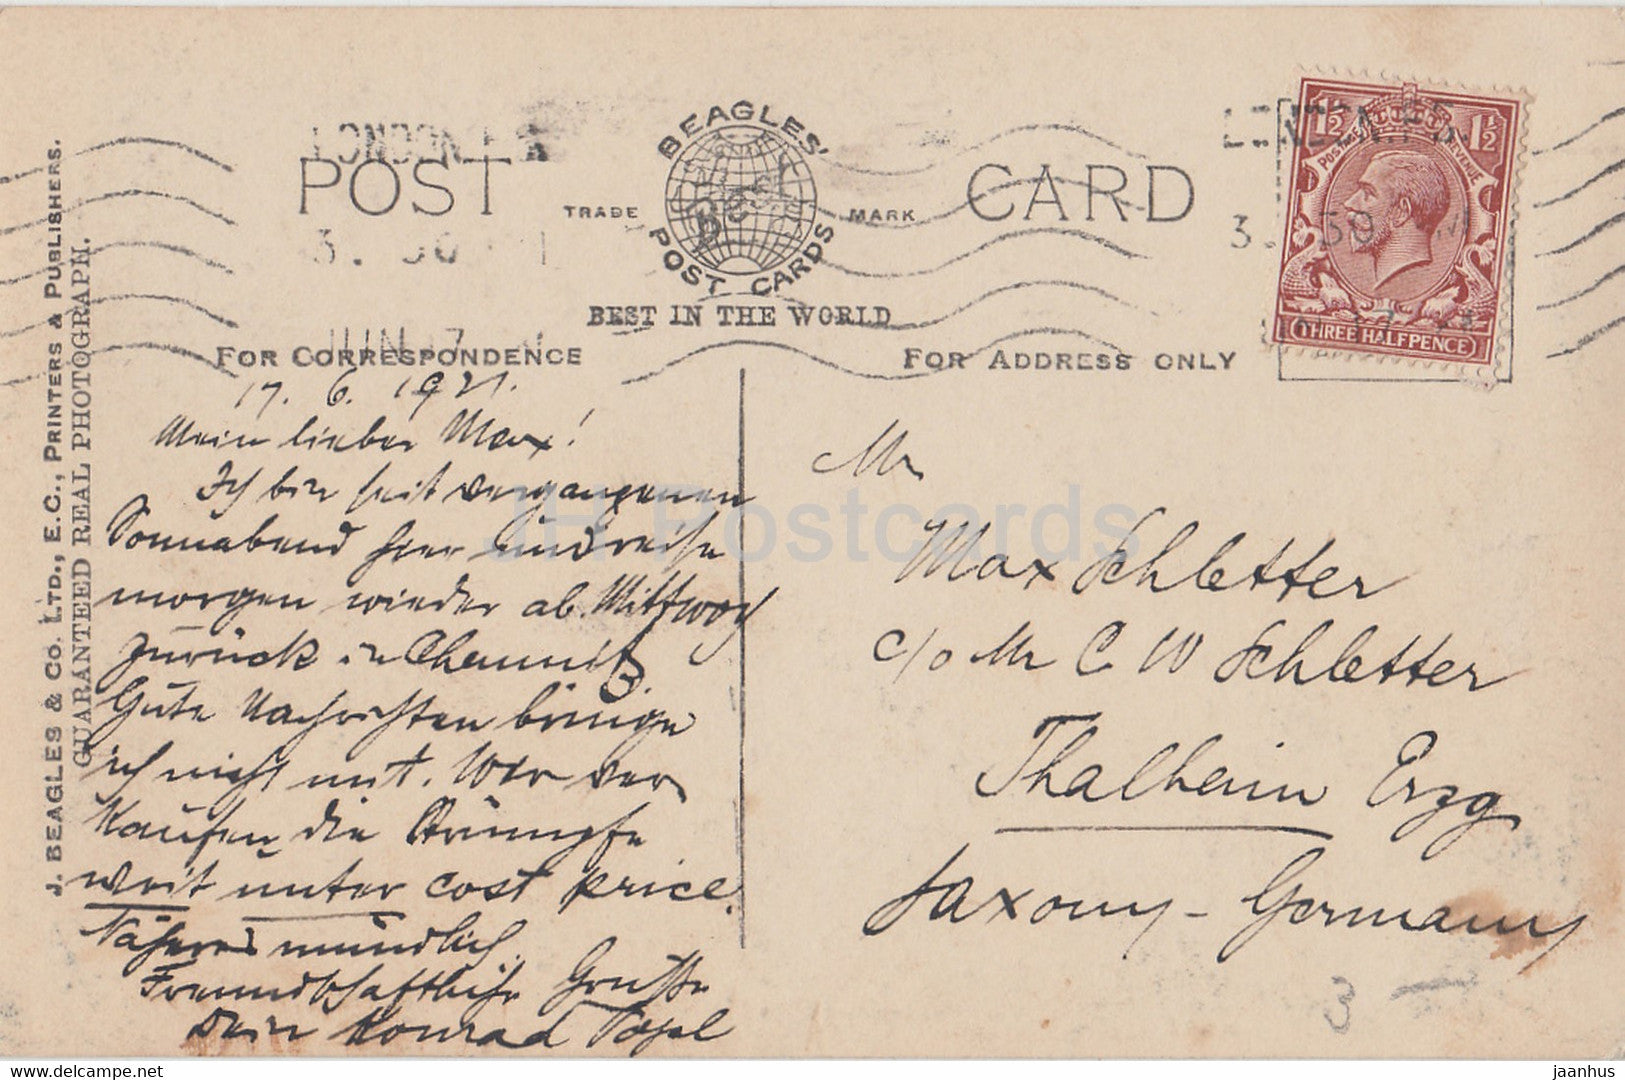 BEAGLES'
POST CARDS
POST CARD
TRADE MARK
BEST IN THE WORLD
FOR CORRESPONDENCE
FOR ADDRESS ONLY
J. BEAGLES & CO. LTD., E.C., PRINTERS & PUBLISHERS.
GUARANTEED REAL PHOTOGRAPH.
LONDON
3. 30
JUN 17
1½ 1½
POSTAGE REVENUE
THREE HALFPENCE
17. 6. 1921.
Mein lieber Max!
Ich bin seit vergangenen
Sonnabend hier und reise
morgen wieder ab. Mittwoch
zurück in Chemnitz.
Gute Nachrichten bringe
ich nicht mit. Wir ver
kaufen die Strümpfe
weit unter cost price.
Näheres mündlich.
Freundschaftliche Grüsse
Dein Konrad Vogel
Mr
Max Schletter
c/o Mr C W Schletter
Thalheim Erzg
Saxony - Germany
3
JH Postcards
www.delcampe.net
jaanhus